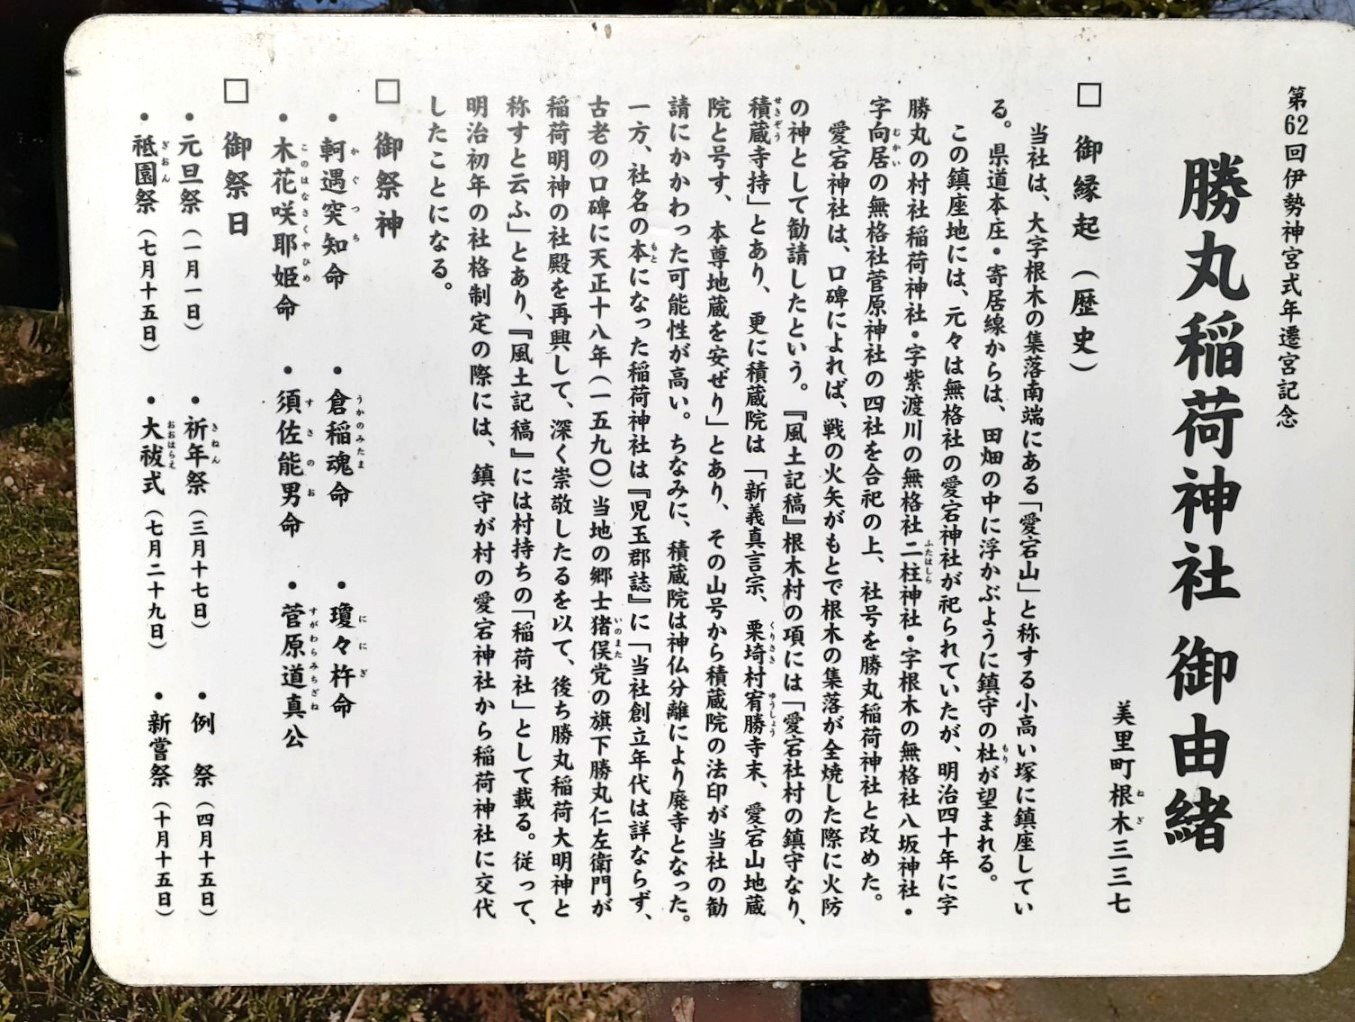 第62回伊勢神宮式年遷宮記念
勝丸稲荷神社 御由緒
美里町根木三三七
□ 御縁起(歴史)
当社は、大字根木の集落南端にある「愛宕山」と称する小高い塚に鎮座してい
る。県道本庄・寄居線からは、田畑の中に浮かぶように鎮守の杜が望まれる。
この鎮座地には、元々は無格社の愛宕神社が祀られていたが、明治四十年に字
勝丸の村社稲荷神社・字紫渡川の無格社二柱神社・字根木の無格社八坂神社・
字向居の無格社菅原神社の四社を合祀の上、社号を勝丸稲荷神社と改めた。
愛宕神社は、口碑によれば、戦の火矢がもとで根木の集落が全焼した際に火防
の神として勧請したという。『風土記稿』根木村の項には「愛宕社村の鎮守なり、
積蔵寺持」とあり、更に積蔵院は「新義真言宗、栗埼村宥勝寺末、愛宕山地蔵
院と号す、本尊地蔵を安ぜり」とあり、その山号から積蔵院の法印が当社の勧
請にかかわった可能性が高い。ちなみに、積蔵院は神仏分離により廃寺となった。
一方、社名の本になった稲荷神社は『児玉郡誌』に「当社創立年代は詳ならず、
古老の口碑に天正十八年(一五九〇)当地の郷士猪俣党の旗下勝丸仁左衛門が
稲荷明神の社殿を再興して、深く崇敬したるを以て、後ち勝丸稲荷大明神と
称すと云ふ」とあり、『風土記稿』には村持ちの「稲荷社」として載る。従って、
明治初年の社格制定の際には、鎮守が村の愛宕神社から稲荷神社に交代
したことになる。
□ 御祭神
・軻遇突知命 ・倉稲魂命 ・瓊々杵命
・木花咲耶姫命 ・須佐能男命 ・菅原道真公
□ 御祭日
・元旦祭(一月一日) ・祈年祭(三月十七日) ・例 祭(四月十五日)
・祇園祭(七月十五日) ・大祓式(七月二十九日) ・新嘗祭(十月十五日)